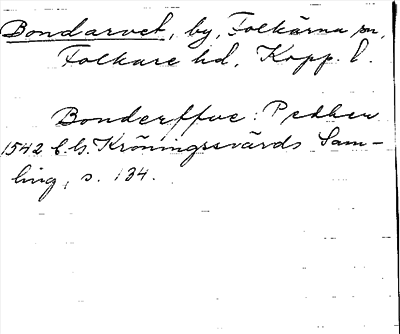 Bondarvet, by, Folkärna sn,
Folkare hd, Kopp. l.
Bonderffue: Pedher
1542 C.G. Kröningssvärds Sam-
ling, s. 134.